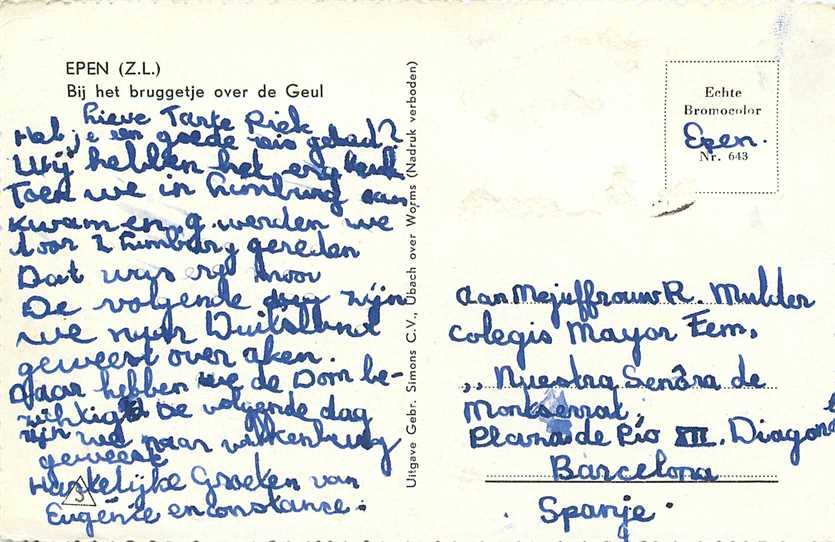 EPEN (Z.L.)
Bij het bruggetje over de Geul
Lieve Tante Riek
Heb je een goede reis gehad?
Wij hebben het erg leuk
Toen we in Limburg aan
kwamen, werden we
door Z Limburg gereden
Dat was erg mooi
De volgende dag zijn
we naar Duitsland
geweest over aken.
Daar hebben we de Dom be-
zichtigd De volgende dag
zijn we naar valkenburg
geweest
Hartelijke Groeten van
Eugénie en constance.
3
Uitgave Gebr. Simons C.V., Ubach over Worms (Nadruk verboden)
Echte
Bromocolor
Epen.
Nr. 643
aan Mejuffrouw R. Mulder
Colegis Mayor Fem.
,, Nuestra Senõra de
Montserrat,
Plana de Pío XII. Diagonal
Barcelona
. Spanje.